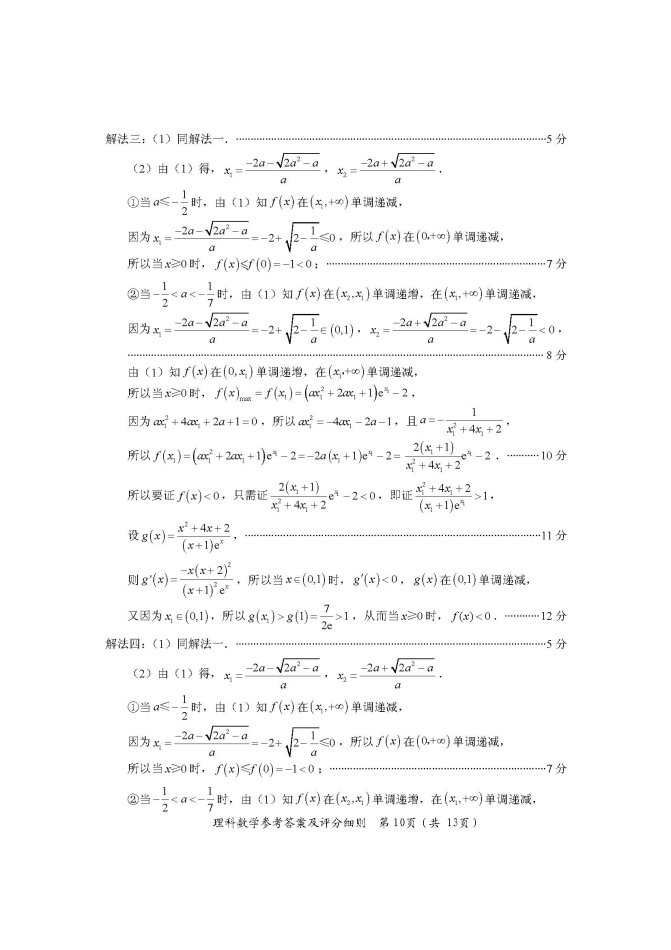 解法三:(1)同解法一. ………………………………………………………………5 分
(2)由(1)得, x₁ = (−2a−√(2a²−a))/a , x₂ = (−2a+√(2a²−a))/a .
①当 a≤−1/2 时,由(1)知 f(x) 在 (x₁,+∞) 单调递减,
因为 x₁ = (−2a−√(2a²−a))/a = −2+√(2−1/a) ≤0 ,所以 f(x) 在 (0,+∞) 单调递减,
所以当 x≥0 时, f(x)≤f(0)=−1<0 ; ………………………………………………7 分
②当 −1/2<a<−1/7 时,由(1)知 f(x) 在 (x₂,x₁) 单调递增,在 (x₁,+∞) 单调递减,
因为 x₁ = (−2a−√(2a²−a))/a = −2+√(2−1/a) ∈(0,1) , x₂ = (−2a+√(2a²−a))/a = −2−√(2−1/a) <0 ,
………………………………………………………………………………………… 8 分
由(1)知 f(x) 在 (0,x₁) 单调递增,在 (x₁,+∞) 单调递减,
所以当 x≥0 时, f(x)max = f(x₁) = (ax₁²+2ax₁+1)e^(x₁)−2 ,
因为 ax₁²+4ax₁+2a+1=0 ,所以 ax₁²=−4ax₁−2a−1 ,且 a=−1/(x₁²+4x₁+2) ,
所以 f(x₁)=(ax₁²+2ax₁+1)e^(x₁)−2=−2a(x₁+1)e^(x₁)−2= 2(x₁+1)/(x₁²+4x₁+2) e^(x₁)−2 . …………10 分
所以要证 f(x)<0 ,只需证 2(x₁+1)/(x₁²+4x₁+2) e^(x₁)−2<0 ,即证 (x₁²+4x₁+2)/((x₁+1)e^(x₁)) >1 ,
设 g(x)= (x²+4x+2)/((x+1)e^x) . ………………………………………………………………11 分
则 g'(x)= −x(x+2)²/((x+1)²e^x) ,所以当 x∈(0,1) 时, g'(x)<0 , g(x) 在 (0,1) 单调递减,
又因为 x₁∈(0,1) ,所以 g(x₁)>g(1)= 7/(2e) >1 ,从而当 x≥0 时, f(x)<0 . …………12 分
解法四:(1)同解法一. ………………………………………………………………5 分
(2)由(1)得, x₁ = (−2a−√(2a²−a))/a , x₂ = (−2a+√(2a²−a))/a .
①当 a≤−1/2 时,由(1)知 f(x) 在 (x₁,+∞) 单调递减,
因为 x₁ = (−2a−√(2a²−a))/a = −2+√(2−1/a) ≤0 ,所以 f(x) 在 (0,+∞) 单调递减,
所以当 x≥0 时, f(x)≤f(0)=−1<0 ; ………………………………………………7 分
②当 −1/2<a<−1/7 时,由(1)知 f(x) 在 (x₂,x₁) 单调递增,在 (x₁,+∞) 单调递减,
理科数学参考答案及评分细则 第 10页(共 13页)